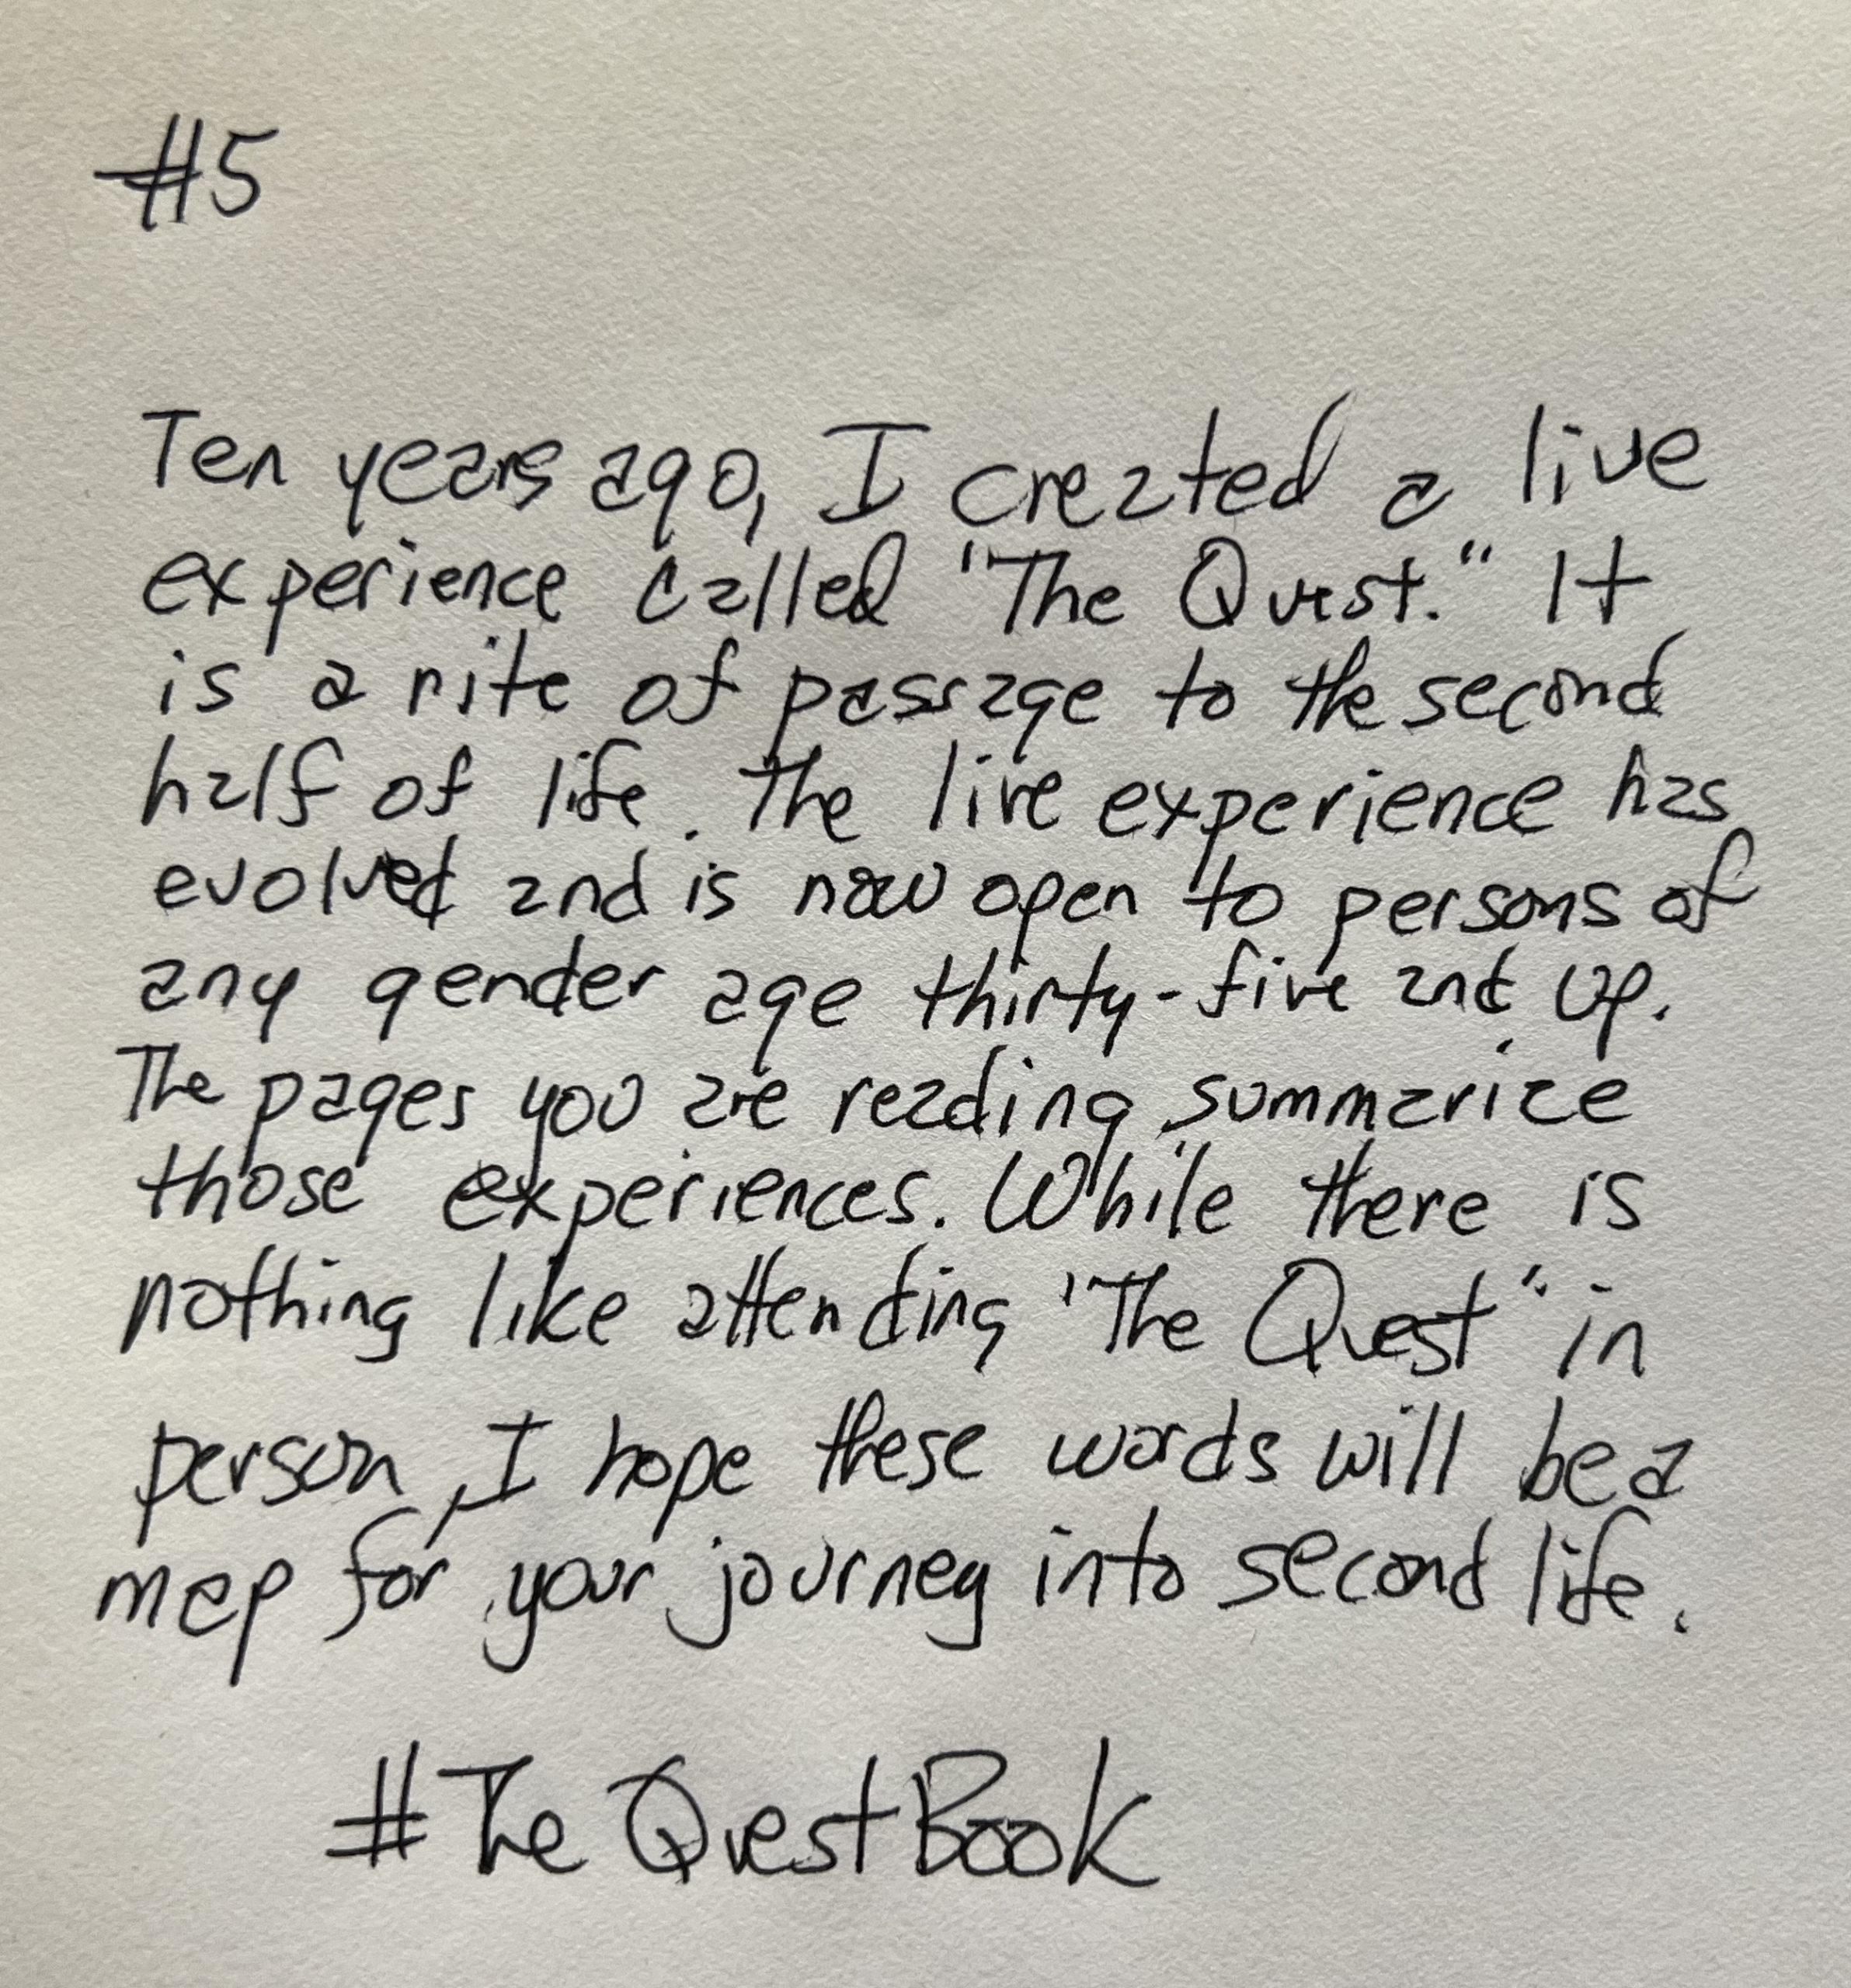 #5
Ten years ago, I created a live
experience called "The Quest." It
is a rite of passage to the second
half of life. The live experience has
evolved and is now open to persons of
any gender age thirty-five and up.
The pages you are reading summarize
those experiences. While there is
nothing like attending "The Quest" in
person, I hope these words will be a
map for your journey into second life.
#TheQuestBook